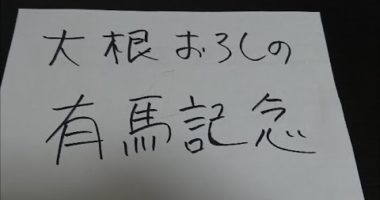 大根おろしの
有馬記念